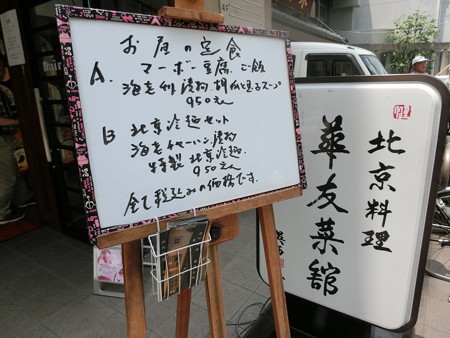 お昼の定食
A. マーボー豆腐、ご飯
950えん
B 北京冷麺セット
海老チャーハン、漬物
特製 北京冷麺.
950えん
全て税込みの価格です.
北京料理
華友菜館